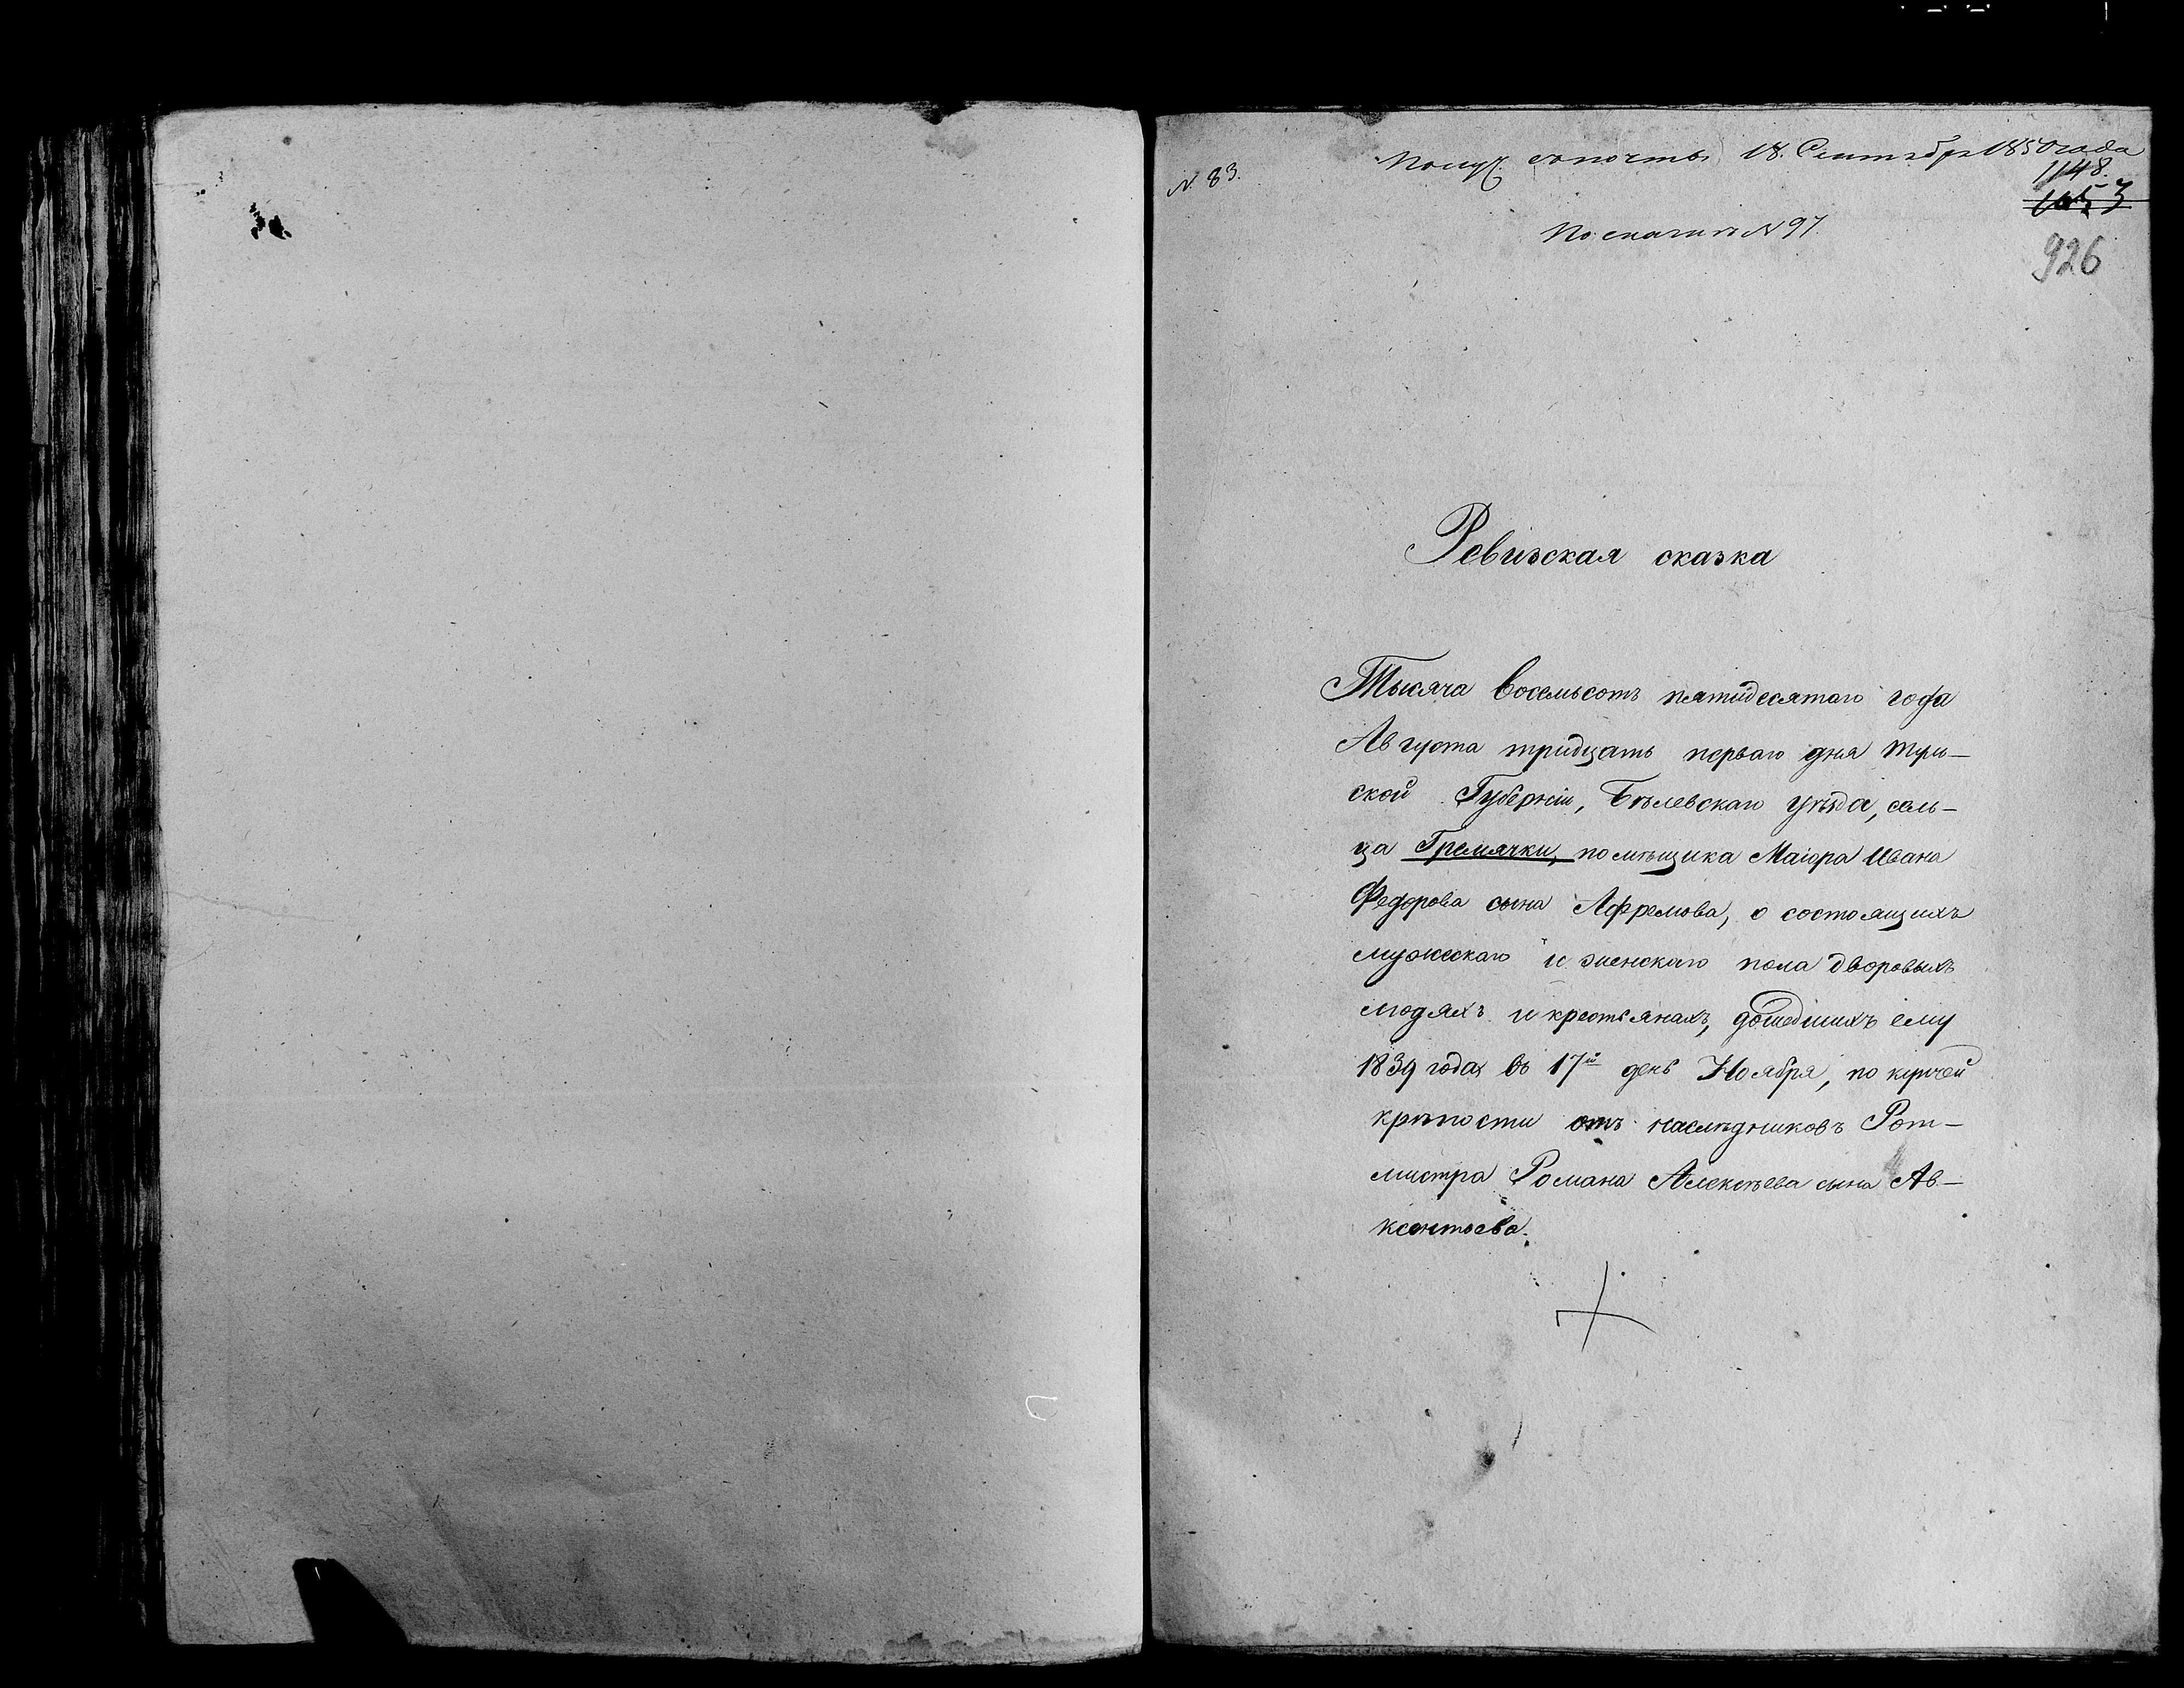 N. 83.
Получ. с почты 18. Сентября 1850 года
1148.
1053
По описи N 97.
926
Ревизская сказка
Тысяча восемьсотъ пятидесятаго года
Августа тридцать перваго дня Туль-
ской Губерніи, Бѣлевскаго уѣзда, сель-
ца Гремячки, помѣщика Маіора Ивана
Федорова сына Афремова, о состоящихъ
мужескаго и женскаго пола дворовыхъ
людяхъ и крестьянахъ, дошедшихъ ему
1839 года въ 17й день Ноября, по купчей
крѣпости отъ наслѣдниковъ Рот-
мистра Романа Алексѣева сына Ав-
ксентьева.